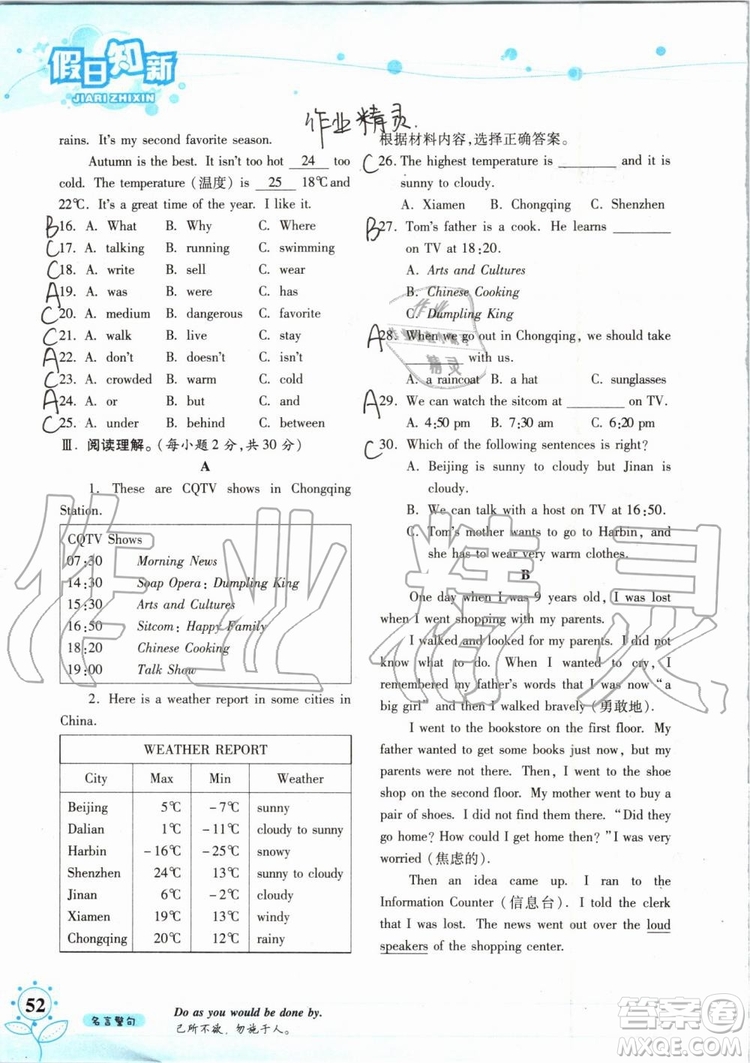 假日知新
JIARI ZHIXIN
作业精灵.
rains. It's my second favorite season.
Autumn is the best. It isn't too hot 24 too
cold. The temperature (温度) is 25 18℃ and
22℃. It's a great time of the year. I like it.
B 16. A. What B. Why C. Where
C 17. A. talking B. running C. swimming
C 18. A. write B. sell C. wear
A 19. A. was B. were C. has
C 20. A. medium B. dangerous C. favorite
C 21. A. walk B. live C. stay
A 22. A. don't B. doesn't C. isn't
C 23. A. crowded B. warm C. cold
A 24. A. or B. but C. and
C 25. A. under B. behind C. between
Ⅲ. 阅读理解。(每小题2分,共30分)
A
1. These are CQTV shows in Chongqing
Station.
CQTV Shows
07:30 Morning News
14:30 Soap Opera: Dumpling King
15:30 Arts and Cultures
16:50 Sitcom: Happy Family
18:20 Chinese Cooking
19:00 Talk Show
2. Here is a weather report in some cities in
China.
WEATHER REPORT
City Max Min Weather
Beijing 5℃ -7℃ sunny
Dalian 1℃ -11℃ cloudy to sunny
Harbin -16℃ -25℃ snowy
Shenzhen 24℃ 13℃ sunny to cloudy
Jinan 6℃ -2℃ cloudy
Xiamen 19℃ 13℃ windy
Chongqing 20℃ 12℃ rainy
根据材料内容,选择正确答案。
C 26. The highest temperature is ________ and it is
sunny to cloudy.
A. Xiamen B. Chongqing C. Shenzhen
B 27. Tom's father is a cook. He learns ________
on TV at 18:20.
A. Arts and Cultures
B. Chinese Cooking
C. Dumpling King
A 28. When we go out in Chongqing, we should take
________ with us.
A. a raincoat B. a hat C. sunglasses
A 29. We can watch the sitcom at ________ on TV.
A. 4:50 pm B. 7:30 am C. 6:20 pm
C 30. Which of the following sentences is right?
A. Beijing is sunny to cloudy but Jinan is
cloudy.
B. We can talk with a host on TV at 16:50.
C. Tom's mother wants to go to Harbin, and
she has to wear very warm clothes.
B
One day when I was 9 years old, I was lost
when I went shopping with my parents.
I walked and looked for my parents. When I
couldn't find them, I wanted to cry. I
remembered my father's words "You are now "a
big girl" and then I walked bravely (勇敢地).
I went to the bookstore on the first floor. My
father wanted to get some books just now, but my
parents were not there. Then I went to the shoe
shop on the second floor. My mother went to buy a
pair of shoes. I lost my heart there. "Did they
go home? How could I get home then?" I was very
worried (焦虑的).
Then an idea came up. I ran to the
Information Counter (信息台). I told the clerk
that I was lost. The news went out over the loud
speakers of the shopping center.
52
名言警句
Do as you would be done by.
己所不欲,勿施于人。
作业精灵
答案圈
MXQE.COM